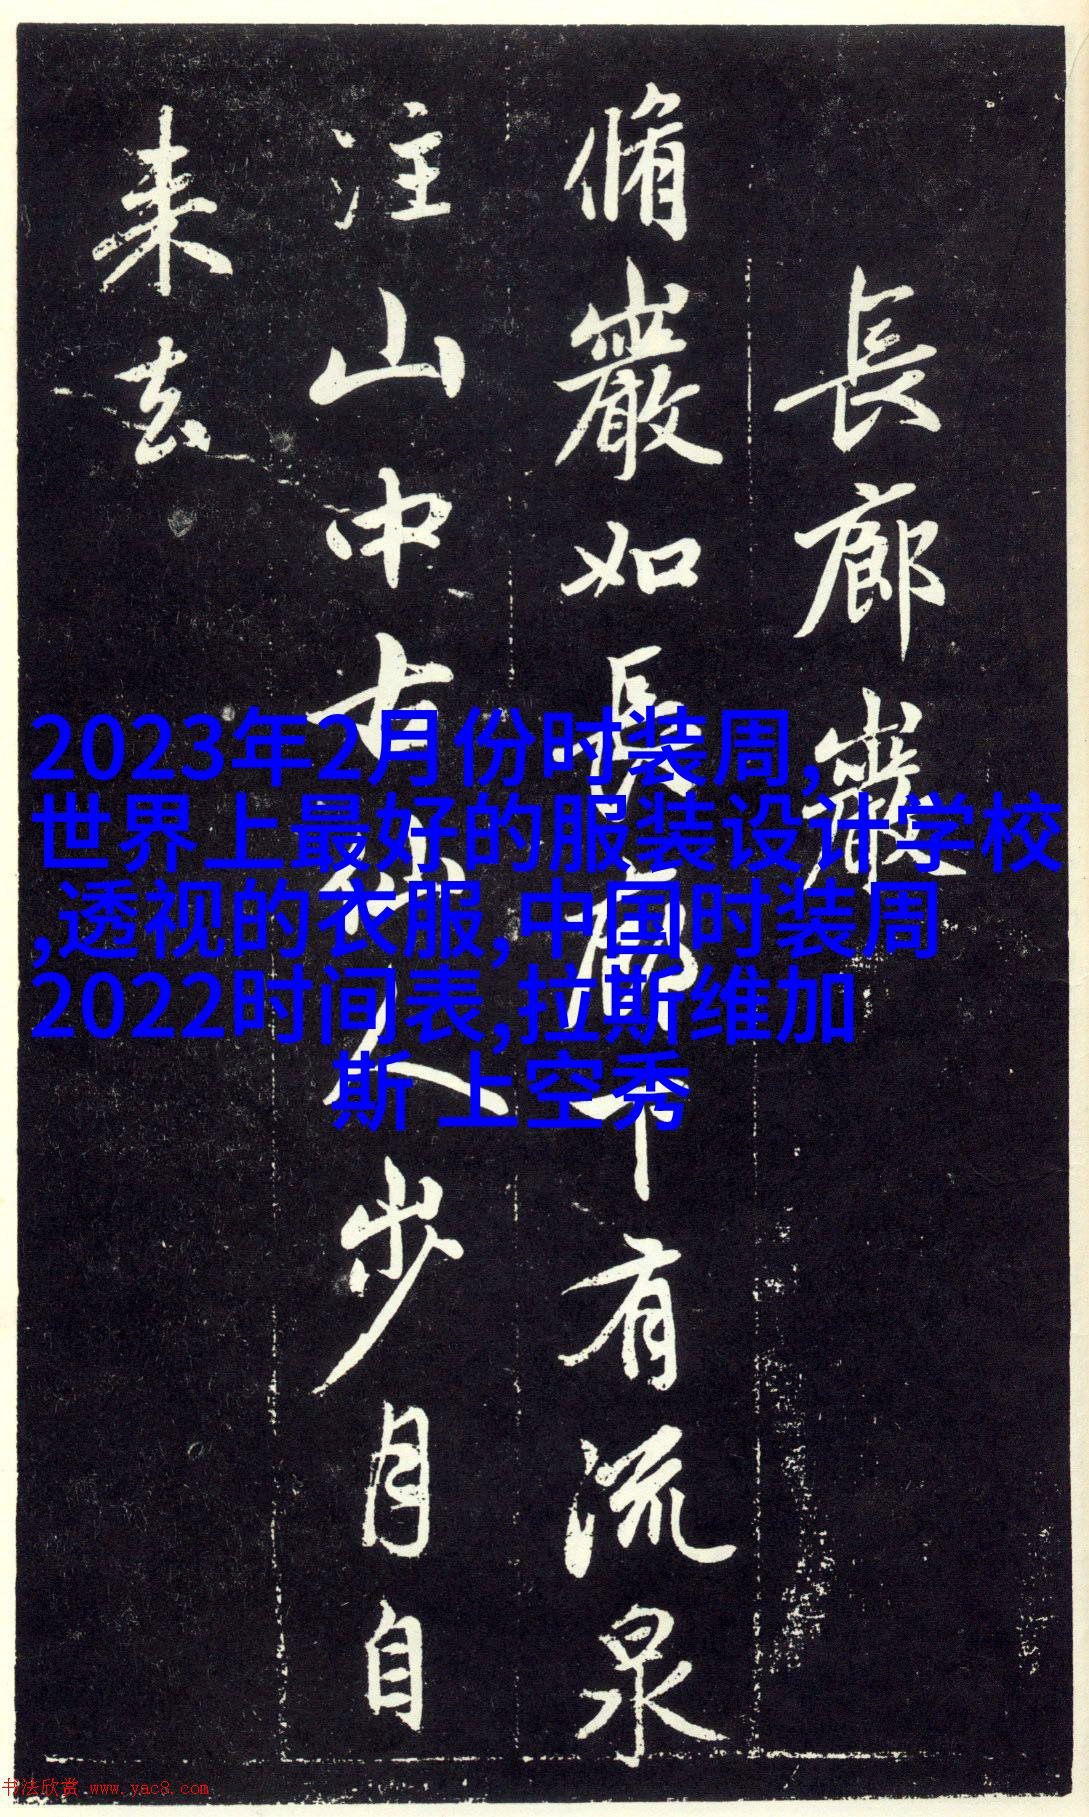 長廊巖
脩巖如長廊下有流泉
注山中古仙人步月自
来去
2023年2月份时装周,
世界上最好的服装设计学校
,透视的衣服,中国时装周
2022时间表,拉斯维加
斯 上空秀
书法欣赏 www.yac8.com